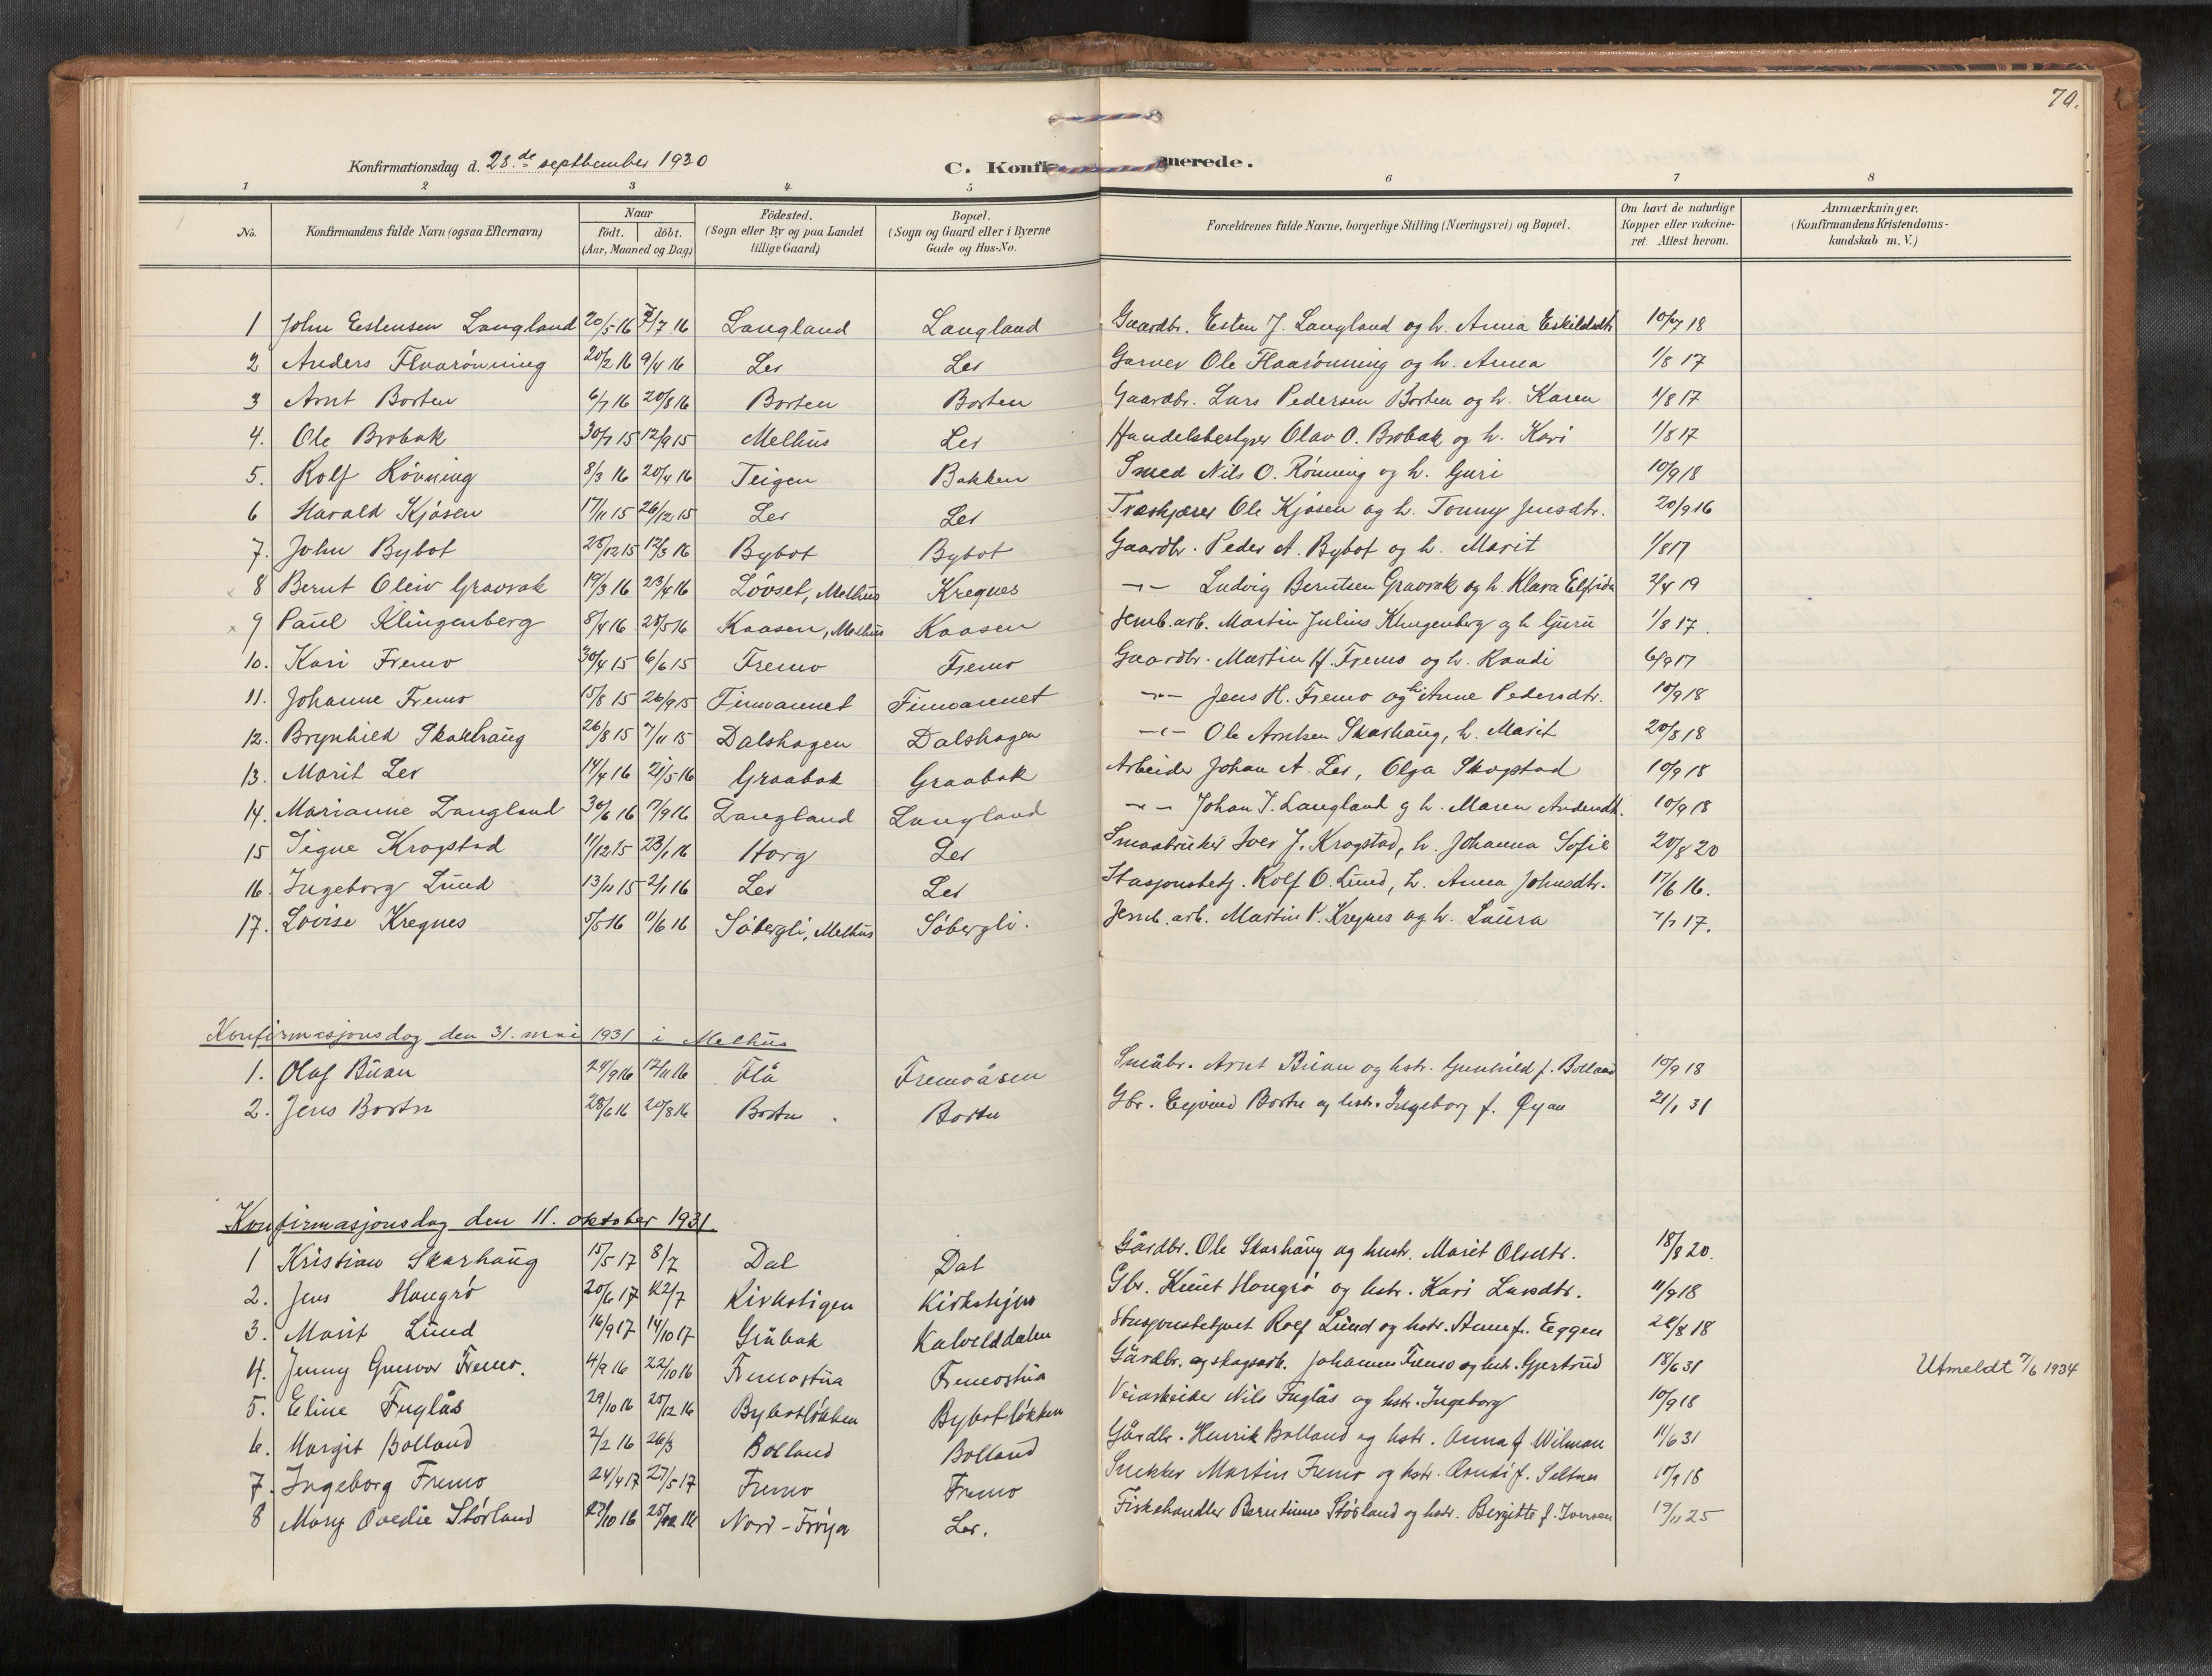 70.
Konfirmationsdag d. 28.de septbember 1930
C. Konfi merede.
1 2 3 4 5 6 7 8
No. Konfirmandens fulde Navn (ogsaa Efternavn) Naar födt. döbt. (Aar, Maaned og Dag) Födested. (Sogn eller By og paa Landet tillige Gaard) Bopæl. (Sogn og Gaard eller i Byerne Gade og Hus-No. Forældrenes fulde Navne, borgerlige Stilling (Næringsvei) og Bopæl. Om havt de naturlige Kopper eller vakcineret. Attest herom. Anmærkninger. (Konfirmandens Kristendomskundskab m. V.)
1 John Estensen Langland 20/5 16 /7 16 Langland Langland Gaardbr. Esten J. Langland og h. Anna Eskildsdtr 10/7 18
2 Anders Flaarønning 20/2 16 9/4 16 Ler Ler Garver Ole Flaarønning og h. Anna 1/8 17
3 Arnt Borten 6/7 16 20/8 16 Borten Borten Gaardbr. Lars Pedersen Borten og h. Karen 1/8 17
4. Ole Brobak 30/7 15 12/9 15 Melhus Ler Handelsbestyrer Olav O. Brobak og h. Kari 1/8 17
5. Rolf Rønning 8/3 16 20/4 16 Teigen Bakken Smed Nils O. Rønning og h. Guri 10/9 18
6 Harald Kjøsen 17/11 15 26/12 15 Ler Ler Træskjærer Ole Kjøsen og h. Tonny Jensdtr. 20/9 16
7. John Bybot 28/12 15 12/3 16 Bybot Bybot Gaardbr. Peder A. Bybot og h. Marit 1/8 17
8 Bernt Oleiv Gravrak 19/3 16 23/4 16 Lövset, Melhus Kregnes -"- Ludvig Berntsen Gravrak og h. Klara Elfrida 2/4 19
9 Paul Klingenberg 8/4 16 28/5 16 Kaasen, Melhus Kaasen Jernb.arb. Martin Julius Klingenberg og h Guru 1/8 17.
10. Kari Fremo 30/4 15 6/6 15 Fremo Fremo Gaardbr. Martin H. Fremo og h. Randi 6/9 17
11. Johanne Fremo 15/8 15 26/9 15 Finvannet Finvannet -"- Jens H. Fremo og h. Anne Pedersdtr. 10/9 18
12. Brynhild Skarhaug 26/8 15 7/11 15 Dalshagen Dalshagen -"- Ole Arntsen Skarhaug, h. Marit 20/8 18
13. Marit Ler 14/4 16 21/5 16 Graabak Graabak Arbeider Johan A. Ler, Olga Skogstad 10/9 18
14. Marianne Langland 30/6 16 7/9 16 Langland Langland -"- Johan J. Langland g h. Maren Andersdt. 10/9 18
15 Signe Krogstad 11/12 15 23/1 16 Horg Ler Smaabruker Iver J. Krogstad, h. Johanna Sofie 20/8 20
16. Ingeborg Lund 13/11 15 2/1 16 Ler Ler Stasjonsbetj. Rolf O. Lund, h. Anna Johnsdtr. 17/6 16.
17. Lovise Kregnes 5/5 16 11/6 16 Söbergli, Melhus Söbergli. Jernb. arb. Martin P. Kregnes og h. Laura 7/7 17.
Konfirmasjonsdag den 31. mai 1931 i Melhus
1. Olaf Buan 24/9 16 12/11 16 Flå Fremoåsen Småbr. Arnt Buan og hstr. Gunhild f. Bolland 10/9 18
2. Jens Borten 28/6 16 20/8 16 Borten Borten Gbr. Eyvind Borten og hstr. Ingeborg f. Øyan 21/1 31
Konfirmasjonsdag den 11. oktober 1931
1 Kristian Skarhaug 15/5 17 8/7 Dal Dal Gårdbr. Ole Skarhaug og hustr. Marit Olsdtr. 18/8 20.
2. Jens Haugrö 20/6 17 22/7 Kirkstigen Kirkstigen Gbr. Knut Haugrö og hstr. Kari Larsdtr. 11/9 18
3. Marit Lund 16/9 17 14/10 17 Gråbak Kalvelddalen Stasjonsbetjent Rolf Lund og hstr. Anna f. Eggen 28/8 18
4. Jenny Gunvor Fremo. 4/9 16 22/10 16 Fremostua Fremostua Gårdbr. og skogsarb. Johannes Fremo og hstr. Gjertrud 18/6 31 Utmeldt 7/6 1934
5. Eline Fuglås 29/10 16 25/12 16 Bybotlökken Bybotlökken Veiarbeider Nils Fuglås og hstr. Ingeborg 10/9 18
6. Margit Bolland 2/2 16 26/3 Bolland Bolland Gårdbr. Henrik Bolland og hstr. Anna f. Wilman 11/6 31
7. Ingeborg Fremo 24/4 17 27/5 17 Fremo Fremo Snekker Martin Fremo og hstr. Randi f. Seltnes 10/9 18
8 Mary Ovedie Störland 27/10 16 25/12 16 Nord-Fröya Ler. Fiskehandler Berntinus Störland og hstr. Birgitte f. Iversen 19/11 25